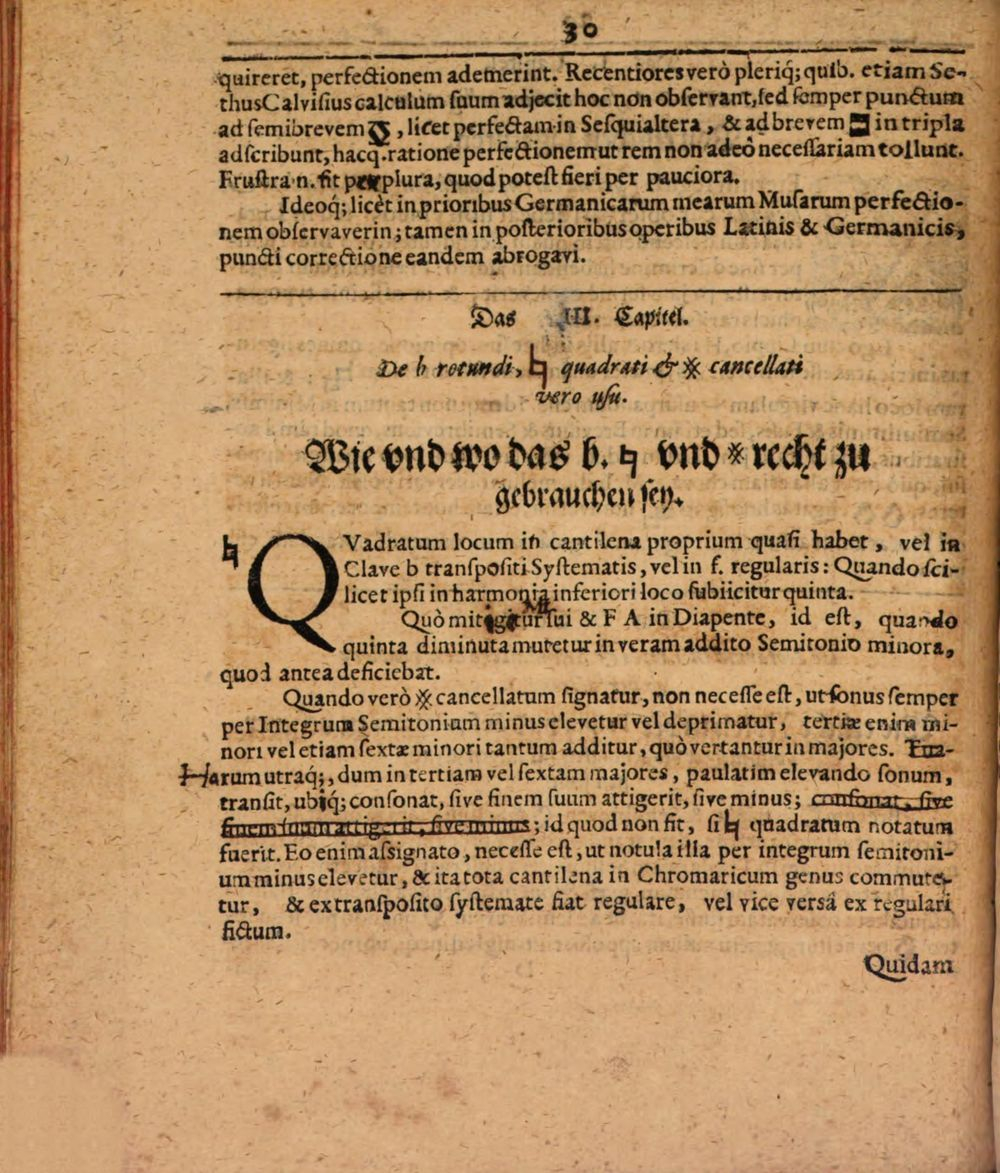 30
quireret, perfectionem ademerint. Recentiores verò pleriq́; quib. etiam Se-
thus Calvisius calculum suum adjecit hoc non observant, sed semper punctum
ad semibrevem , licet perfectam in Sesquialtera, & ad brevem in tripla
adscribunt, hacq́. ratione perfectionem ut rem non adeò necessariam tollunt.
Frustra n. fit per plura, quod potest fieri per pauciora.
Ideoq́; licèt in prioribus Germanicarum mearum Musarum perfectio-
nem observaverin; tamen in posterioribus operibus Latinis & Germanicis,
puncti correctione eandem abrogavi.
Das III. Capitel.
De b rotundi, ♮ quadrati & ※ cancellati
vero usu.
Wie vnd wo das b. ♮ vnd * recht zu
gebrauchen sey.
♮ QVadratum locum in cantilena proprium quasi habet, vel in
Clave b transpositi Systematis, vel in f. regularis: Quando sci-
licet ipsi in harmonia inferiori loco subiicitur quinta.
Quò mi &  F A in Diapente, id est, quando
quinta diminuta mutetur in veram addito Semitonio minora,
quod antea deficiebat.
Quando verò ※ cancellatum signatur, non necesse est, ut sonus semper
per Integrum Semitonium minus elevetur vel deprimatur, tertiæ enim mi-
nori vel etiam sextæ minori tantum additur, quò vertantur in majores.
Harum utraq́;, dum in tertiam vel sextam majores, paulatim elevando sonum,
transit, ubiq́; consonat, sive finem suum attigerit, sive minus; consonat, sive
finem suum attigerit, sive minus; id quod non fit, si ♮ quadratum notatum
fuerit. Eo enim assignato, necesse est, ut notula illa per integrum semitoni-
um minus elevetur, & ita tota cantilena in Chromaticum genus commute-
tur, & ex transposito systemate fiat regulare, vel vice versâ ex regulari
fictum.
Quidam